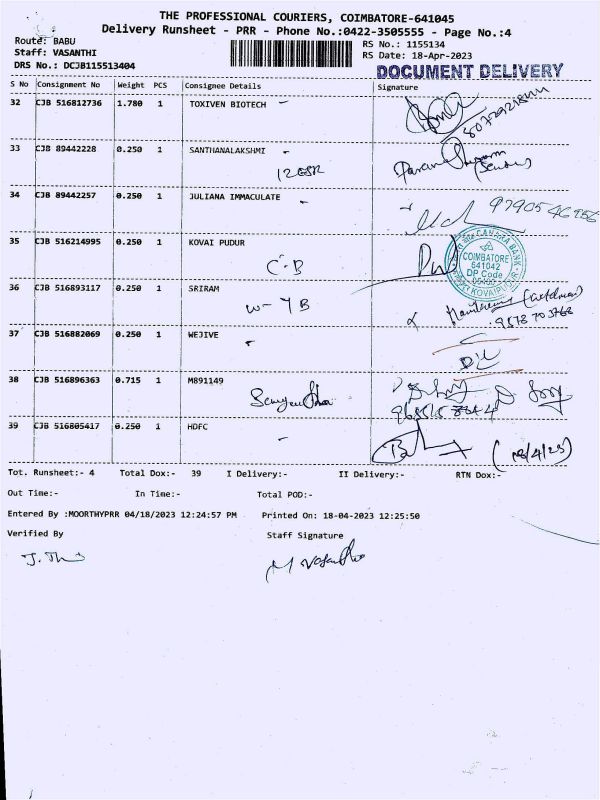 THE PROFESSIONAL COURIERS, COIMBATORE-641045
Delivery Runsheet - PRR - Phone No.:0422-3505555 - Page No.:4
Route: BABU
RS No.: 1155134
Staff: VASANTHI
RS Date: 18-Apr-2023
DRS No.: DCJB115513404
DOCUMENT DELIVERY
S No Consignment No Weight PCS Consignee Details Signature
32 CJB 516812736 1.780 1 TOXIVEN BIOTECH -
33 CJB 89442228 0.250 1 SANTHANALAKSHMI -
34 CJB 89442257 0.250 1 JULIANA IMMACULATE -
35 CJB 516214995 0.250 1 KOVAI PUDUR
C-B
CANARA BANK
COIMBATORE
641042
DP Code
KOVAIPUDUR
36 CJB 516893117 0.250 1 SRIRAM
W-YB
37 CJB 516882069 0.250 1 WEJIVE
38 CJB 516896363 0.715 1 M891149
39 CJB 516805417 0.250 1 HDFC -
(18/4/23)
Tot. Runsheet:- 4 Total Dox:- 39 I Delivery:- II Delivery:- RTN Dox:-
Out Time:- In Time:- Total POD:-
Entered By :MOORTHYPRR 04/18/2023 12:24:57 PM Printed On: 18-04-2023 12:25:50
Verified By Staff Signature